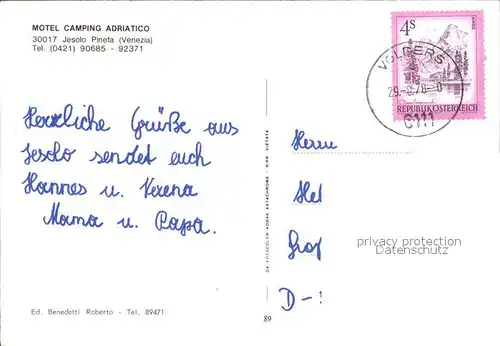 MOTEL CAMPING ADRIATICO
30017 Jesolo Pineta (Venezia)
Tel. (0421) 90685 - 92371
Herzliche Grüße aus
Jesolo sendet euch
Hannes u. Verena
Mama u. Papa.
Ed. Benedetti Roberto - Tel. 89471
DA FOTOCOLOR KODAK EKTACHROME - RIPR. VIETATA
89
4s
REPUBLIK ÖSTERREICH
VOLDERS
6111
Herrn
Hel
Graf
D-
privacy protection
Datenschutz